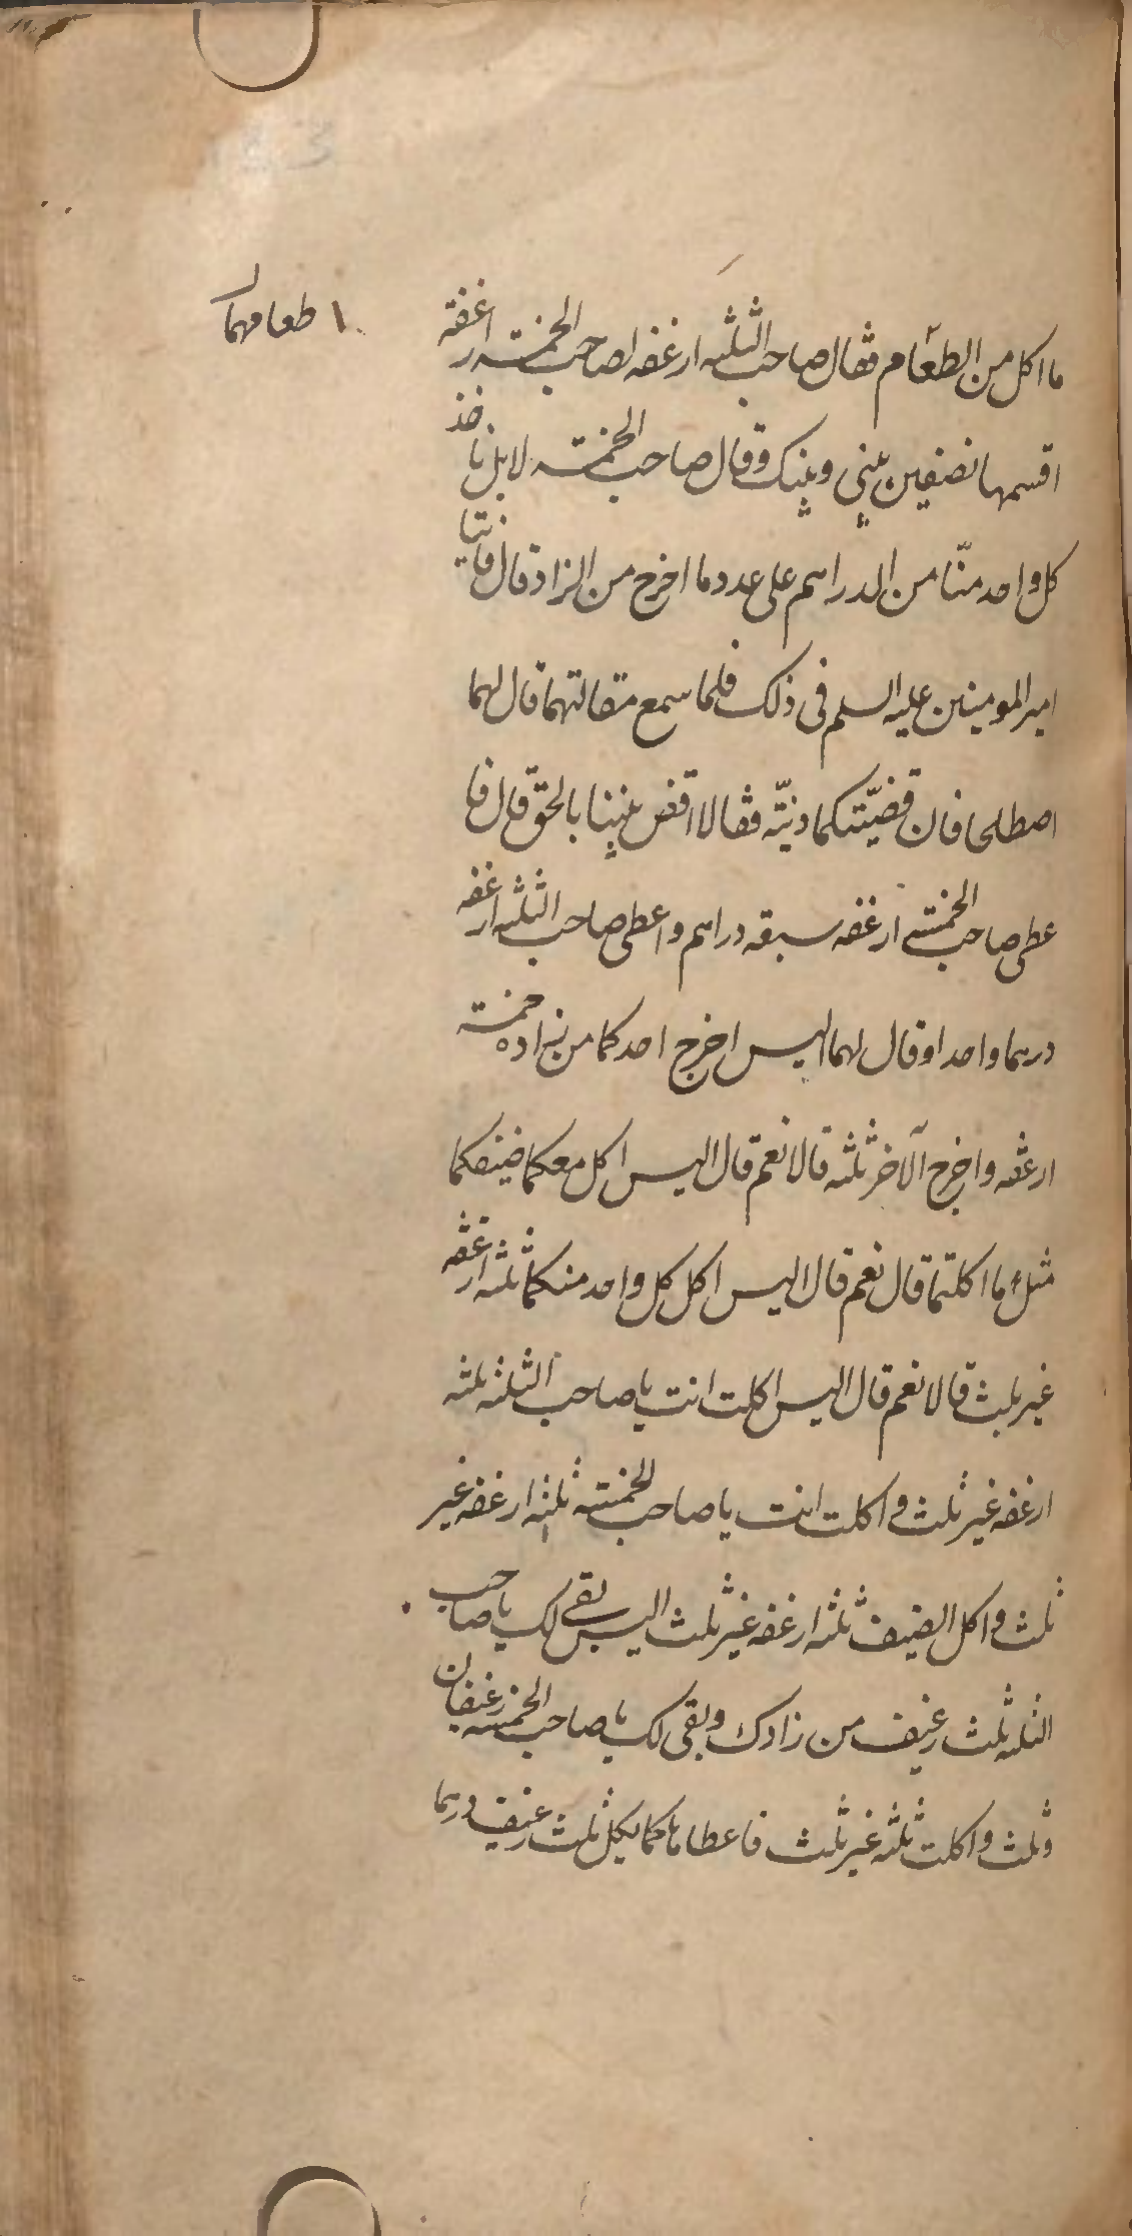 ما اكل من الطعام فقال صاحب الثلثه ارغفه لصاحب الخمسته ارغفة
اقسمها نصفين بيني وبينك وقال صاحب الخمسته لا بل ناخذ
كل واحد منّا من الدراهم على عدد ما اخرج من الزاد قال فاتيا
امير المومنين عليه السلم فى ذلك فلما سمع مقالتهما قال لهما
اصطلحا فان قضيّتكما دنيّه فقالا اقض بيننا بالحقّ قال فا
عطى صاحب الخمسته ارغفه سبعه دراهم واعطى صاحب الثلثه ارغفه
درهما واحدا وقال لهما اليس اخرج احدكما من زاده خمسته
ارغفه واخرج آلاخر ثلثه قالا نعم قال اليس اكل معكما ضيفكما
مثل ما اكلتما قال نعم قال اليس اكل كل واحد منكما ثلثه ارغفه
غير ثلث قالا نعم قال اليس اكلت انت يا صاحب الثلثه ثلثه
ارغفه غير ثلث و اكلت انت يا صاحب الخمسته ثلثه ارغفه غير
ثلث و اكل الضيف ثلثه ارغفه غير ثلث اليس بقى لك يا صاحب
الثلثه ثلث رغيف من زادك وبقى لك يا صاحب الخمسه رغيفان
وثلث واكلت ثلثه غير ثلث فاعطاهاكما بكل ثلث رغيف درهما
١ طعامهما